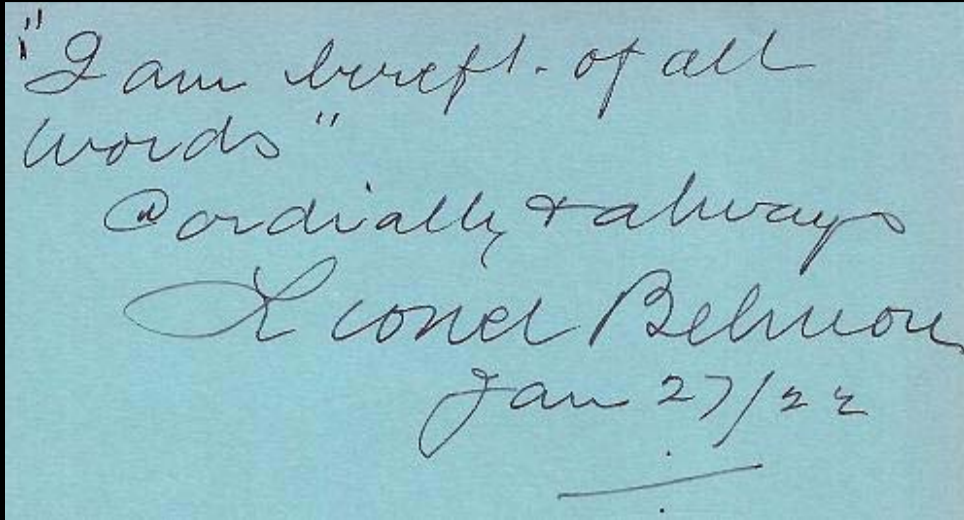 "I am bereft. of all
words"
Cordially & always
Lionel Belmore
Jan 27/22